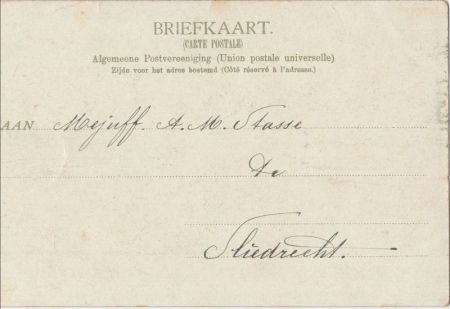 BRIEFKAART.
(CARTE POSTALE)
Algemeene Postvereeniging (Union postale universelle)
Zijde voor het adres bestemd (Côté réservé à l'adresse.)
AAN Mejuff. A. M. Stasse
Te
Sliedrecht.